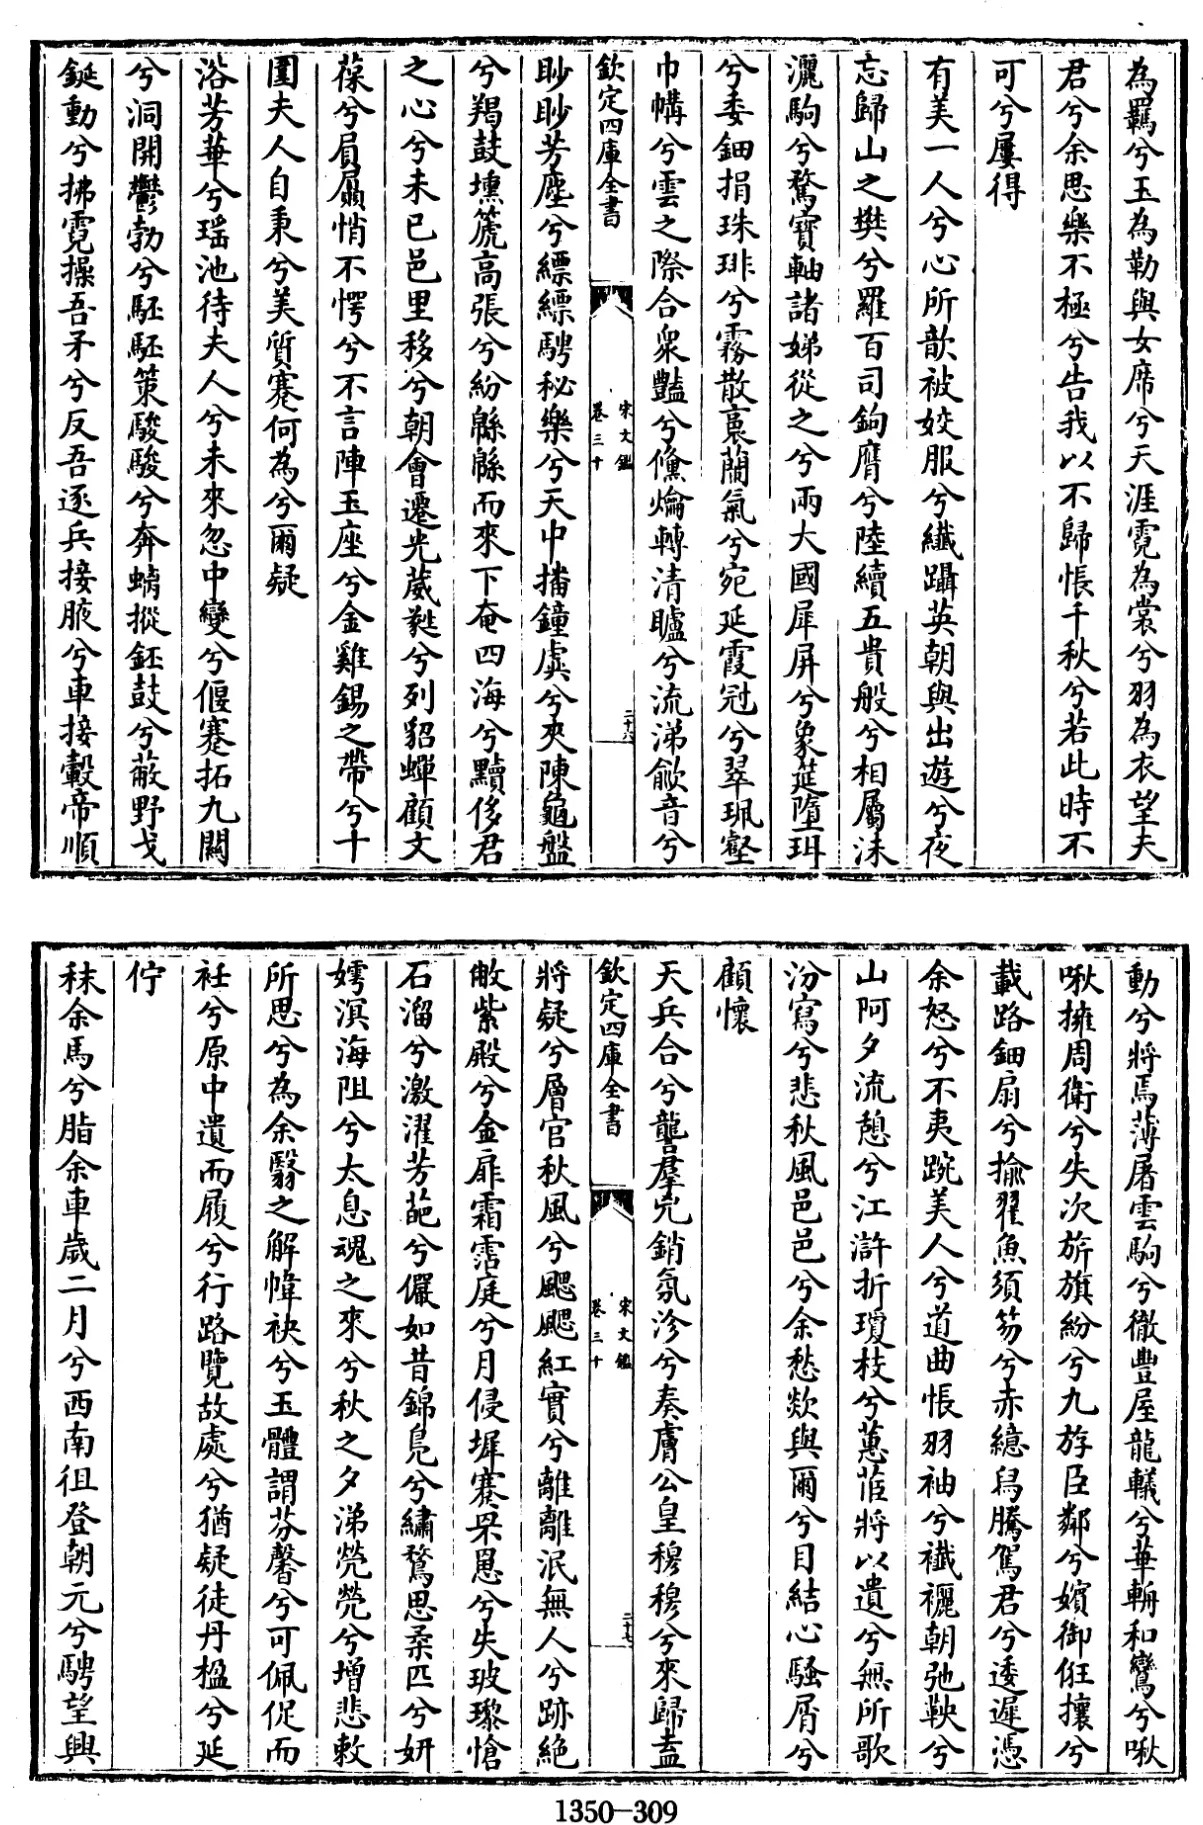 為羈兮玉為勒與女席兮天涯霓為裳兮羽為衣望夫
君兮余思樂不極兮告我以不歸悵千秋兮若此時不
可兮屢得
有美一人兮心所歆被姣服兮纖躡英朝與出遊兮夜
忘歸山之樊兮羅百司鉤膺兮陸續五貴般兮相屬沬
灑駒兮騖寶軸諸娣從之兮兩大國犀屏兮象筵墮珥
兮委鈿捐珠琲兮霧散裛蘭氣兮宛延霞冠兮翠珮壑
巾幬兮雲之際合衆豔兮儵爚轉清矑兮流涕歈音兮
欽定四庫全書
宋文鑑
卷三十
二十六
眇眇芳塵兮縹縹騁秘樂兮天中播鐘虡兮夾陳龜盤
兮羯鼓壎篪高張兮紛緜緜而來下奄四海兮黷侈君
之心兮未已邑里移兮朝會遷光葳蕤兮列貂蟬顧文
葆兮屓屭悄不愕兮不言陣玉座兮金雞錫之帶兮十
圍夫人自秉兮美質蹇何為兮爾疑
浴芳華兮瑶池待夫人兮未來忽中變兮偃蹇拓九關
兮洞開鬱勃兮駓駓策駿駿兮奔螭摐鉦鼓兮蔽野戈
鋋動兮拂霓操吾矛兮反吾逐兵接腋兮車接轂帝順
動兮將焉薄屠雲駒兮徹豊屋龍轙兮華輈和鸞兮啾
啾擁周衛兮失次旂旗紛兮九斿臣鄰兮嬪御俇攘兮
載路鈿扇兮揄翟魚須笏兮赤繶舄騰駕君兮逶遲憑
余怒兮不夷踠美人兮道曲悵羽袖兮襳襹朝弛鞅兮
山阿夕流憩兮江滸折瓊枝兮蕙茝將以遺兮無所歌
汾寫兮悲秋風邑邑兮余愁欻與爾兮目結心騷屑兮
顧懷
天兵合兮讋羣兇銷氛沴兮奏膚公皇穆穆兮來歸盍
欽定四庫全書
宋文鑑
卷三十
二十七
將疑兮層宮秋風兮颸颸紅實兮離離泯無人兮跡絶
敞紫殿兮金扉霜霑庭兮月侵墀褰罘罳兮失玻瓈愴
石溜兮激濯芳葩兮儼如昔錦鳧兮繡鶩思柔匹兮妍
嫮溟海阻兮太息魂之來兮秋之夕涕焭焭兮增悲敕
所思兮為余翳之解幃袂兮玉體謂芬馨兮可佩促而
袵兮原中遺而履兮行路覽故處兮猶疑徒丹楹兮延
佇
秣余馬兮脂余車歲二月兮西南徂登朝元兮騁望興
1350-309